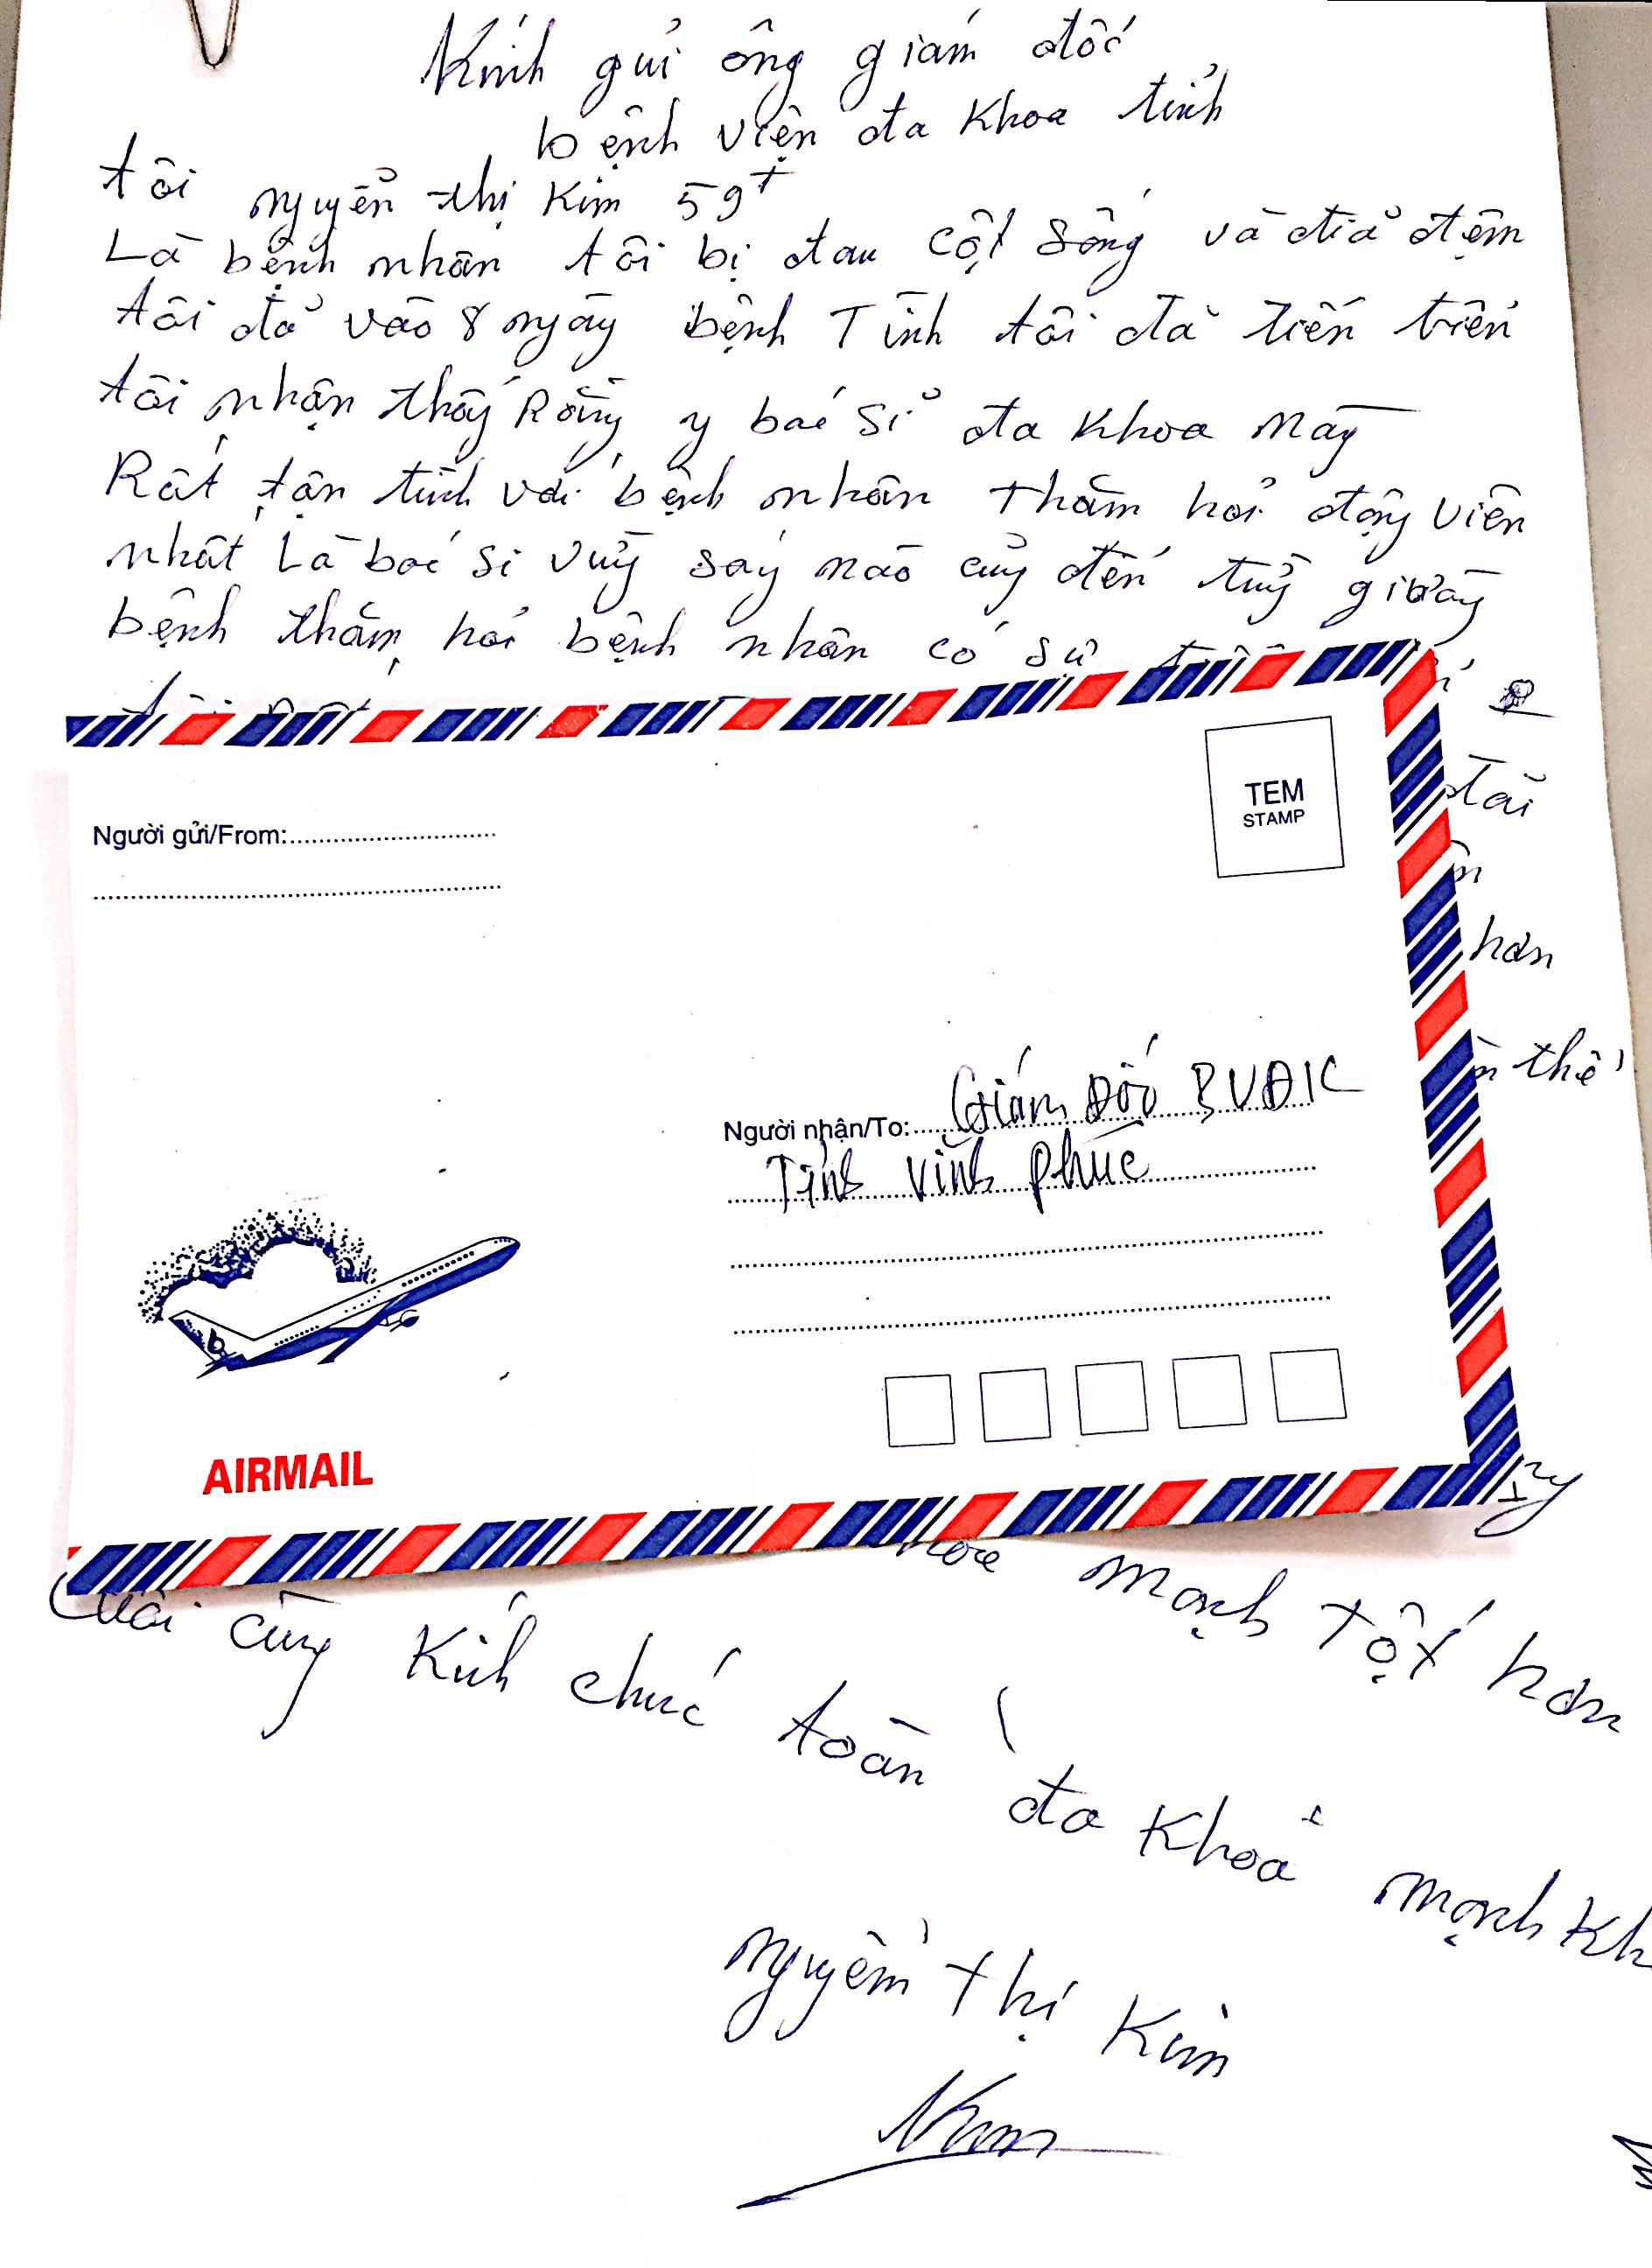 Kính gửi ông giám đốc
bệnh viện đa khoa tỉnh
tôi nguyển thị Kim 59t
Là bệnh nhân tôi bị đau cột sống và đĩa đệm
tôi đả vào 8 ngày bệnh Tình tôi đả tiến triển
tôi nhận thấy Rằng y bác sỉ đa khoa này
Rất tận tình với bệnh nhân thăm hỏi động viên
nhất Là bác sỉ Vũ sáy nào cũng đến từng giường
bệnh thăm hỏi bệnh nhân có sự
hơn
thế
TEM
STAMP
Người gửi/From:
Người nhận/To: Giám Đốc BVĐK
Tỉnh Vĩnh Phúc
AIRMAIL
mạnh tốt hơn
Cuối cùng Kính chúc toàn đa khoa mạnh
nguyển thị Kim